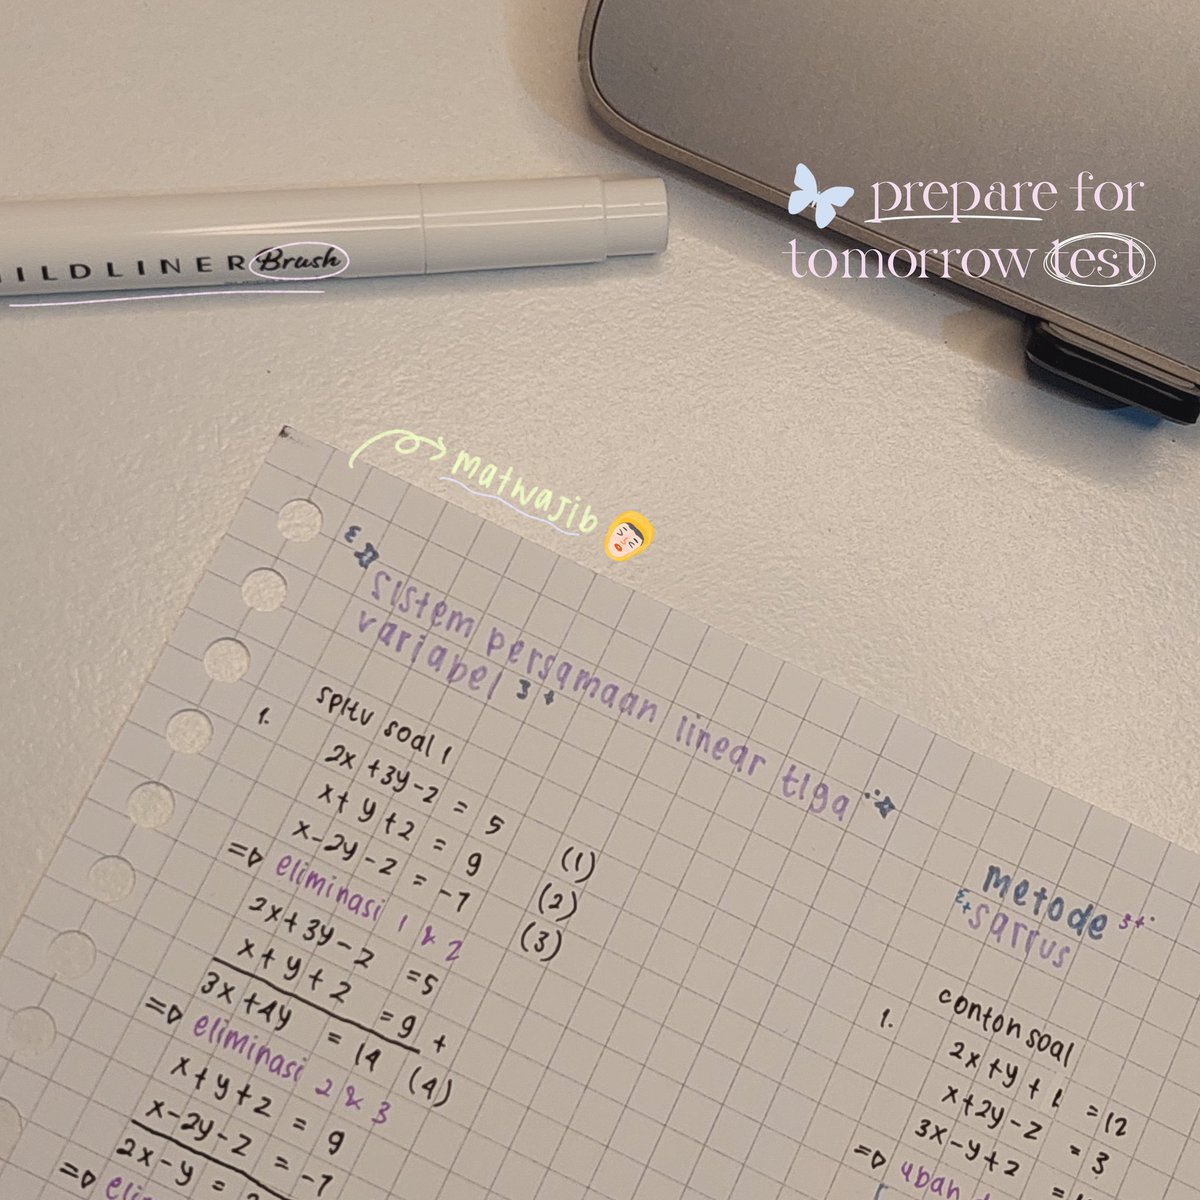 prepare for
tomorrow test
ILDLINER Brush
matwajib
sistem persamaan linear tiga
variabel
spltv soal 1
1.
2x + 3y - z = 5 (1)
x + y + z = 9 (2)
x - 2y - z = -7 (3)
=> eliminasi 1 & 2
2x + 3y - z = 5
x + y + z = 9 +
3x + 4y = 14 (4)
=> eliminasi 2 & 3
x + y + z = 9
x - 2y - z = -7
2x - y =
=>
metode
sarrus
contoh soal
1.
2x + y + z = 12
x + 2y - z = 3
3x - y + z =
=> ubah